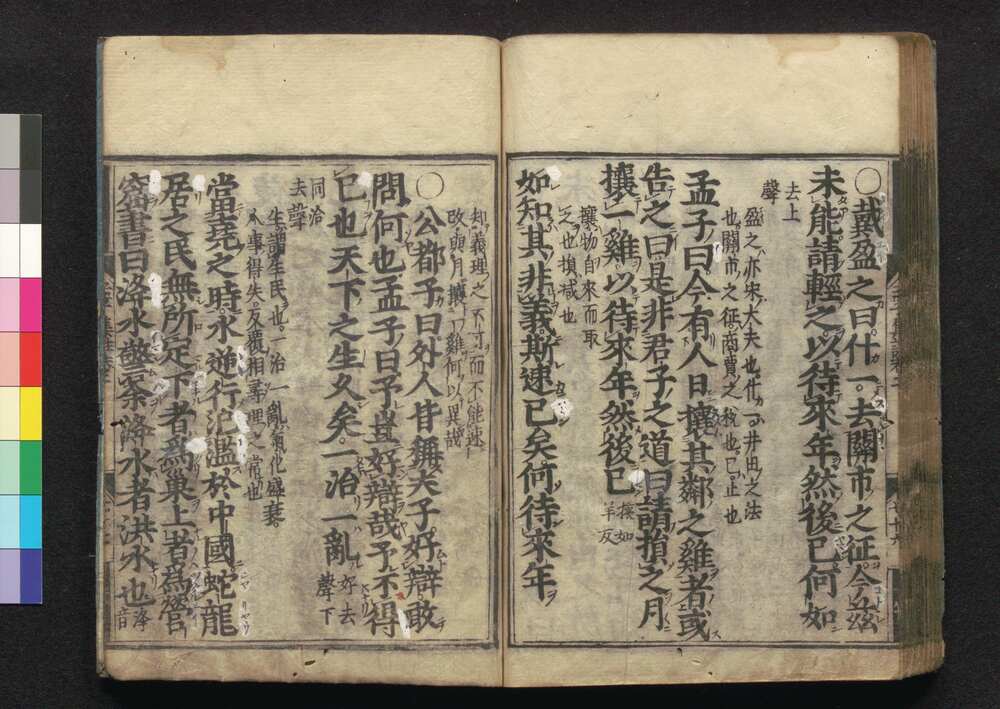 ○戴盈之曰什一去關市之征今玆
未能請輕之以待來年然後已何如
去上
聲
盈之亦宋大夫也什一井田之法
也關市之征商賈之稅也已止也
孟子曰今有人日攘其鄰之雞者或
告之曰是非君子之道曰請損之月
攘一雞以待來年然後已
攘如
羊反
攘物自來而取
之也損减也
如知其非義斯速已矣何待來年
知義理之不可而不能速
改與月攘一雞何以異哉
○公都子曰外人皆稱夫子好辯敢
問何也孟子曰予豈好辯哉予不得
已也天下之生久矣一治一亂
好去
聲下
同治
去聲
生謂生民也一治一亂氣化盛衰
人事得失反覆相尋理之常也
當堯之時水逆行氾濫於中國蛇龍
居之民無所定下者爲巢上者爲營
窟書曰洚水警余洚水者洪水也
洚
音